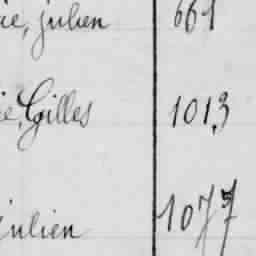 ie, julien 661
ie, Gilles 1013
julien 1077